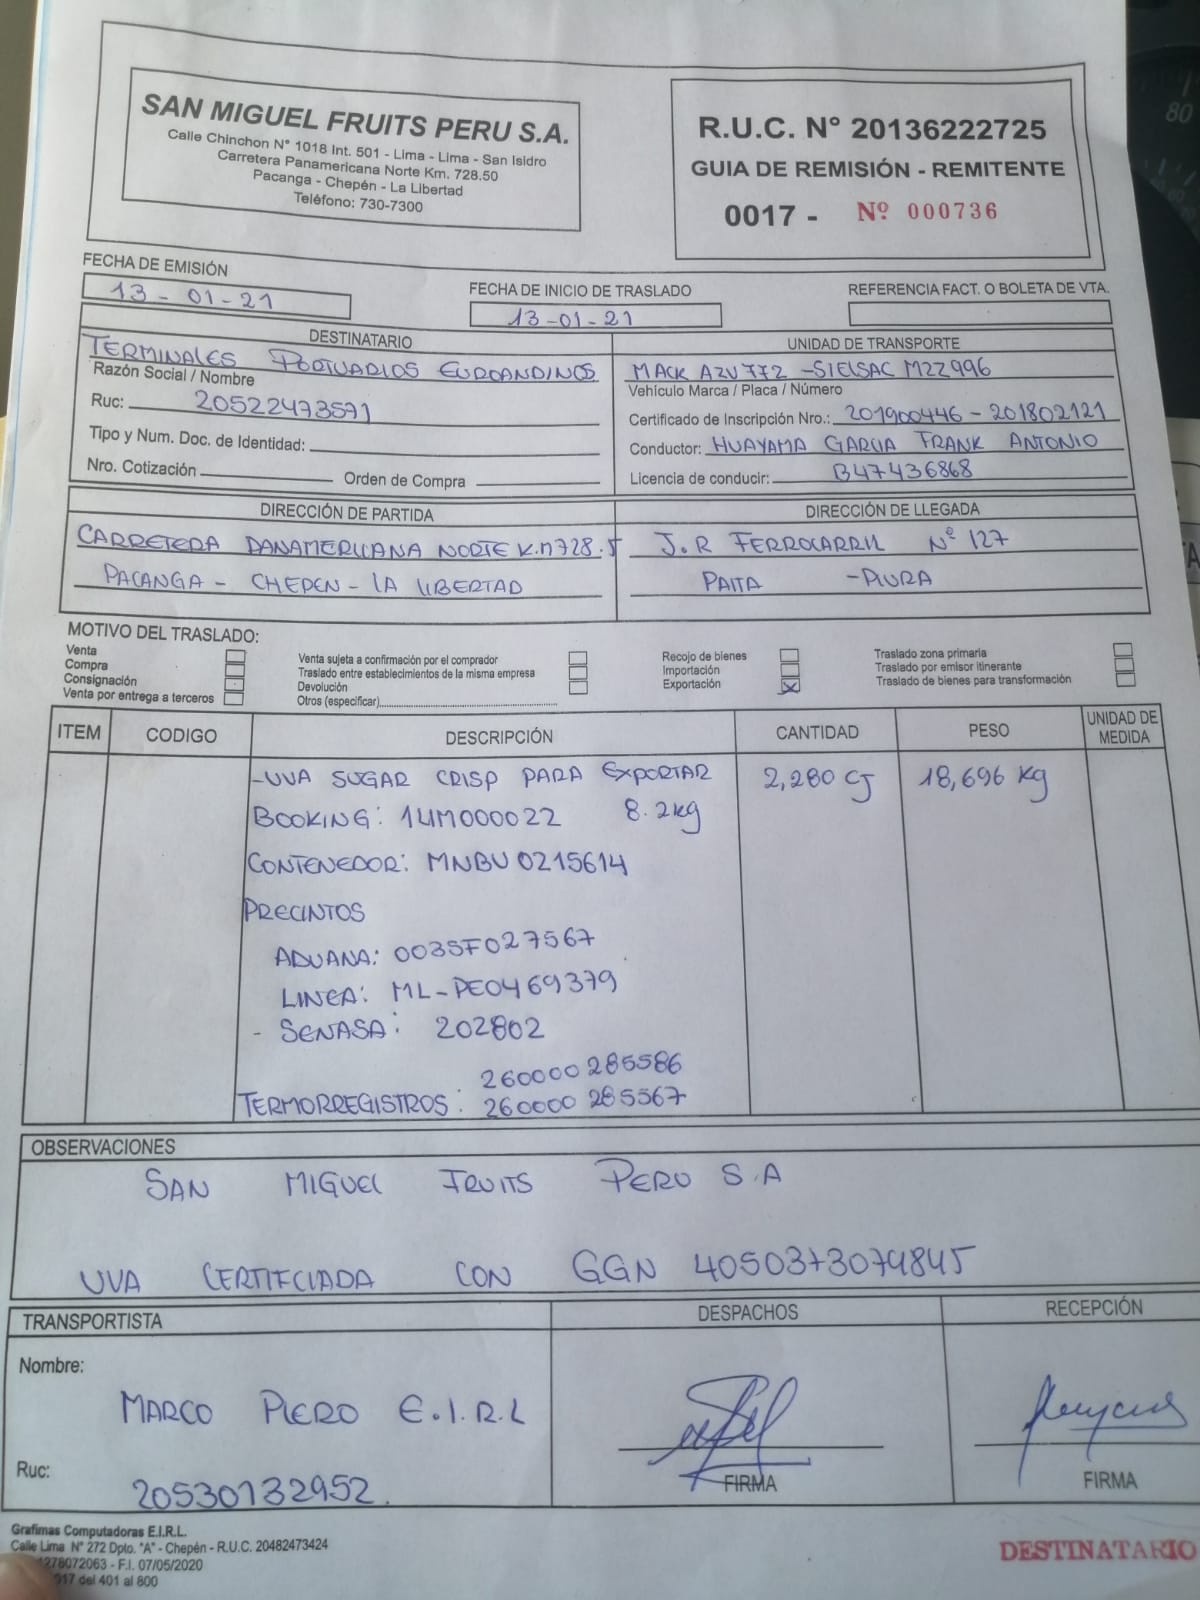 SAN MIGUEL FRUITS PERU S.A.
Calle Chinchon N° 1018 Int. 501 - Lima - Lima - San Isidro
Carretera Panamericana Norte Km. 728.50
Pacanga - Chepén - La Libertad
Teléfono: 730-7300
R.U.C. N° 20136222725
GUIA DE REMISIÓN - REMITENTE
0017 - Nº 000736
FECHA DE EMISIÓN
13-01-21
FECHA DE INICIO DE TRASLADO
13-01-21
REFERENCIA FACT. O BOLETA DE VTA.
DESTINATARIO
TERMINALES PORTUARIOS EUROANDINOS
Razón Social / Nombre
Ruc: 20522473571
Tipo y Num. Doc. de Identidad:
Nro. Cotización Orden de Compra
UNIDAD DE TRANSPORTE
MACK AZV772 - SIELSAC M2Z996
Vehículo Marca / Placa / Número
Certificado de Inscripción Nro.: 201900446 - 201802121
Conductor: HUAYAMA GARCIA FRANK ANTONIO
Licencia de conducir: B47436868
DIRECCIÓN DE PARTIDA
CARRETERA PANAMERICANA NORTE K.M728.5
PACANGA - CHEPEN - LA LIBERTAD
DIRECCIÓN DE LLEGADA
J.R FERROCARRIL Nº 127
PAITA - PIURA
MOTIVO DEL TRASLADO:
Venta
Compra
Consignación
Venta por entrega a terceros
Venta sujeta a confirmación por el comprador
Traslado entre establecimientos de la misma empresa
Devolución
Otros (especificar)
Recojo de bienes
Importación
Exportación X
Traslado zona primaria
Traslado por emisor itinerante
Traslado de bienes para transformación
ITEM CODIGO DESCRIPCIÓN CANTIDAD PESO UNIDAD DE MEDIDA
-UVA SUGAR CRISP PARA EXPORTAR 2,280 CJ 18,696 Kg
BOOKING: 1LIM000022 8.2kg
CONTENEDOR: MNBU 0215614
PRECINTOS
ADUANA: 0035F027567
LINEA: ML-PE0469379
- SENASA: 202802
260000 285586
TERMORREGISTROS: 260000 285567
OBSERVACIONES
SAN MIGUEL FRUITS PERU S.A
UVA CERTIFCIADA CON GGN 4050373074845
TRANSPORTISTA
Nombre:
MARCO PIERO E.I.R.L
Ruc:
20530132952.
DESPACHOS
FIRMA
RECEPCIÓN
FIRMA
Grafimas Computadoras E.I.R.L.
Calle Lima N° 272 Dpto. "A" - Chepén - R.U.C. 20482473424
1278072063 - F.I. 07/05/2020
017 del 401 al 800
DESTINATARIO